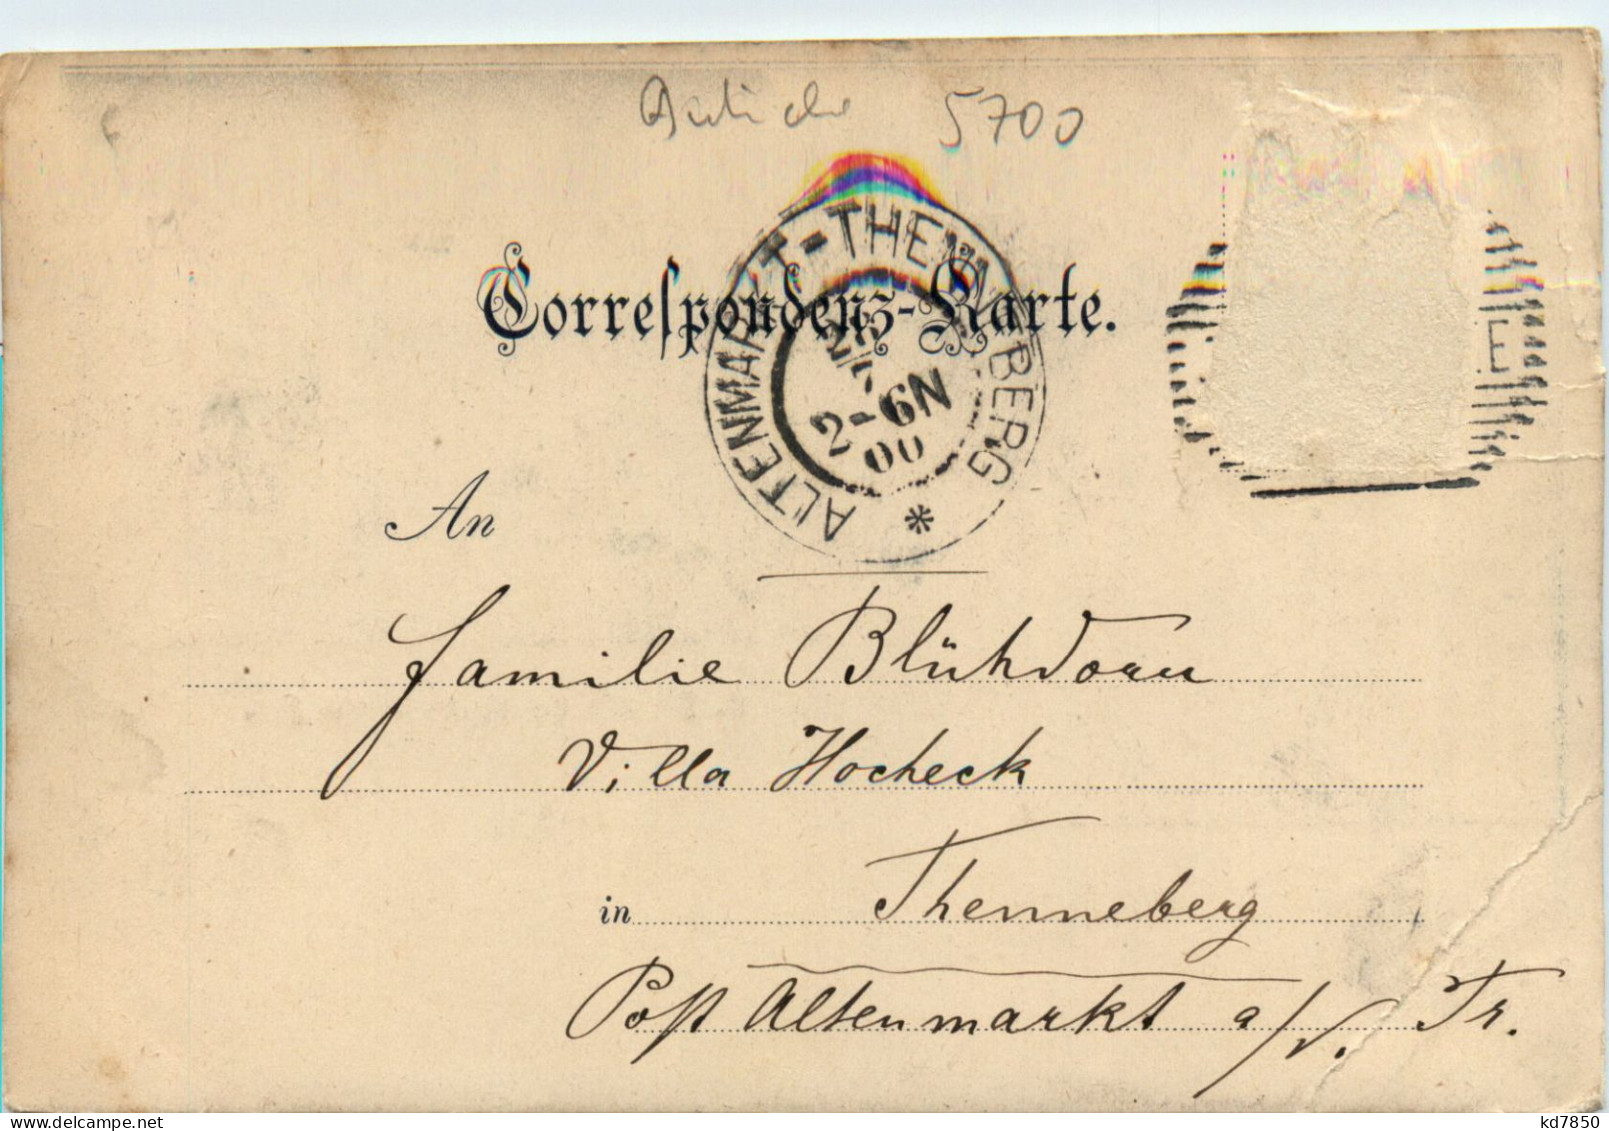 5700
Correspondenz-Karte.
ALTENMARKT-THENNEBERG *
2-6N
00
An
Familie Blühdorn
Villa Hocheck
in Thenneberg
Post Altenmarkt a/d. Tr.
kd7850